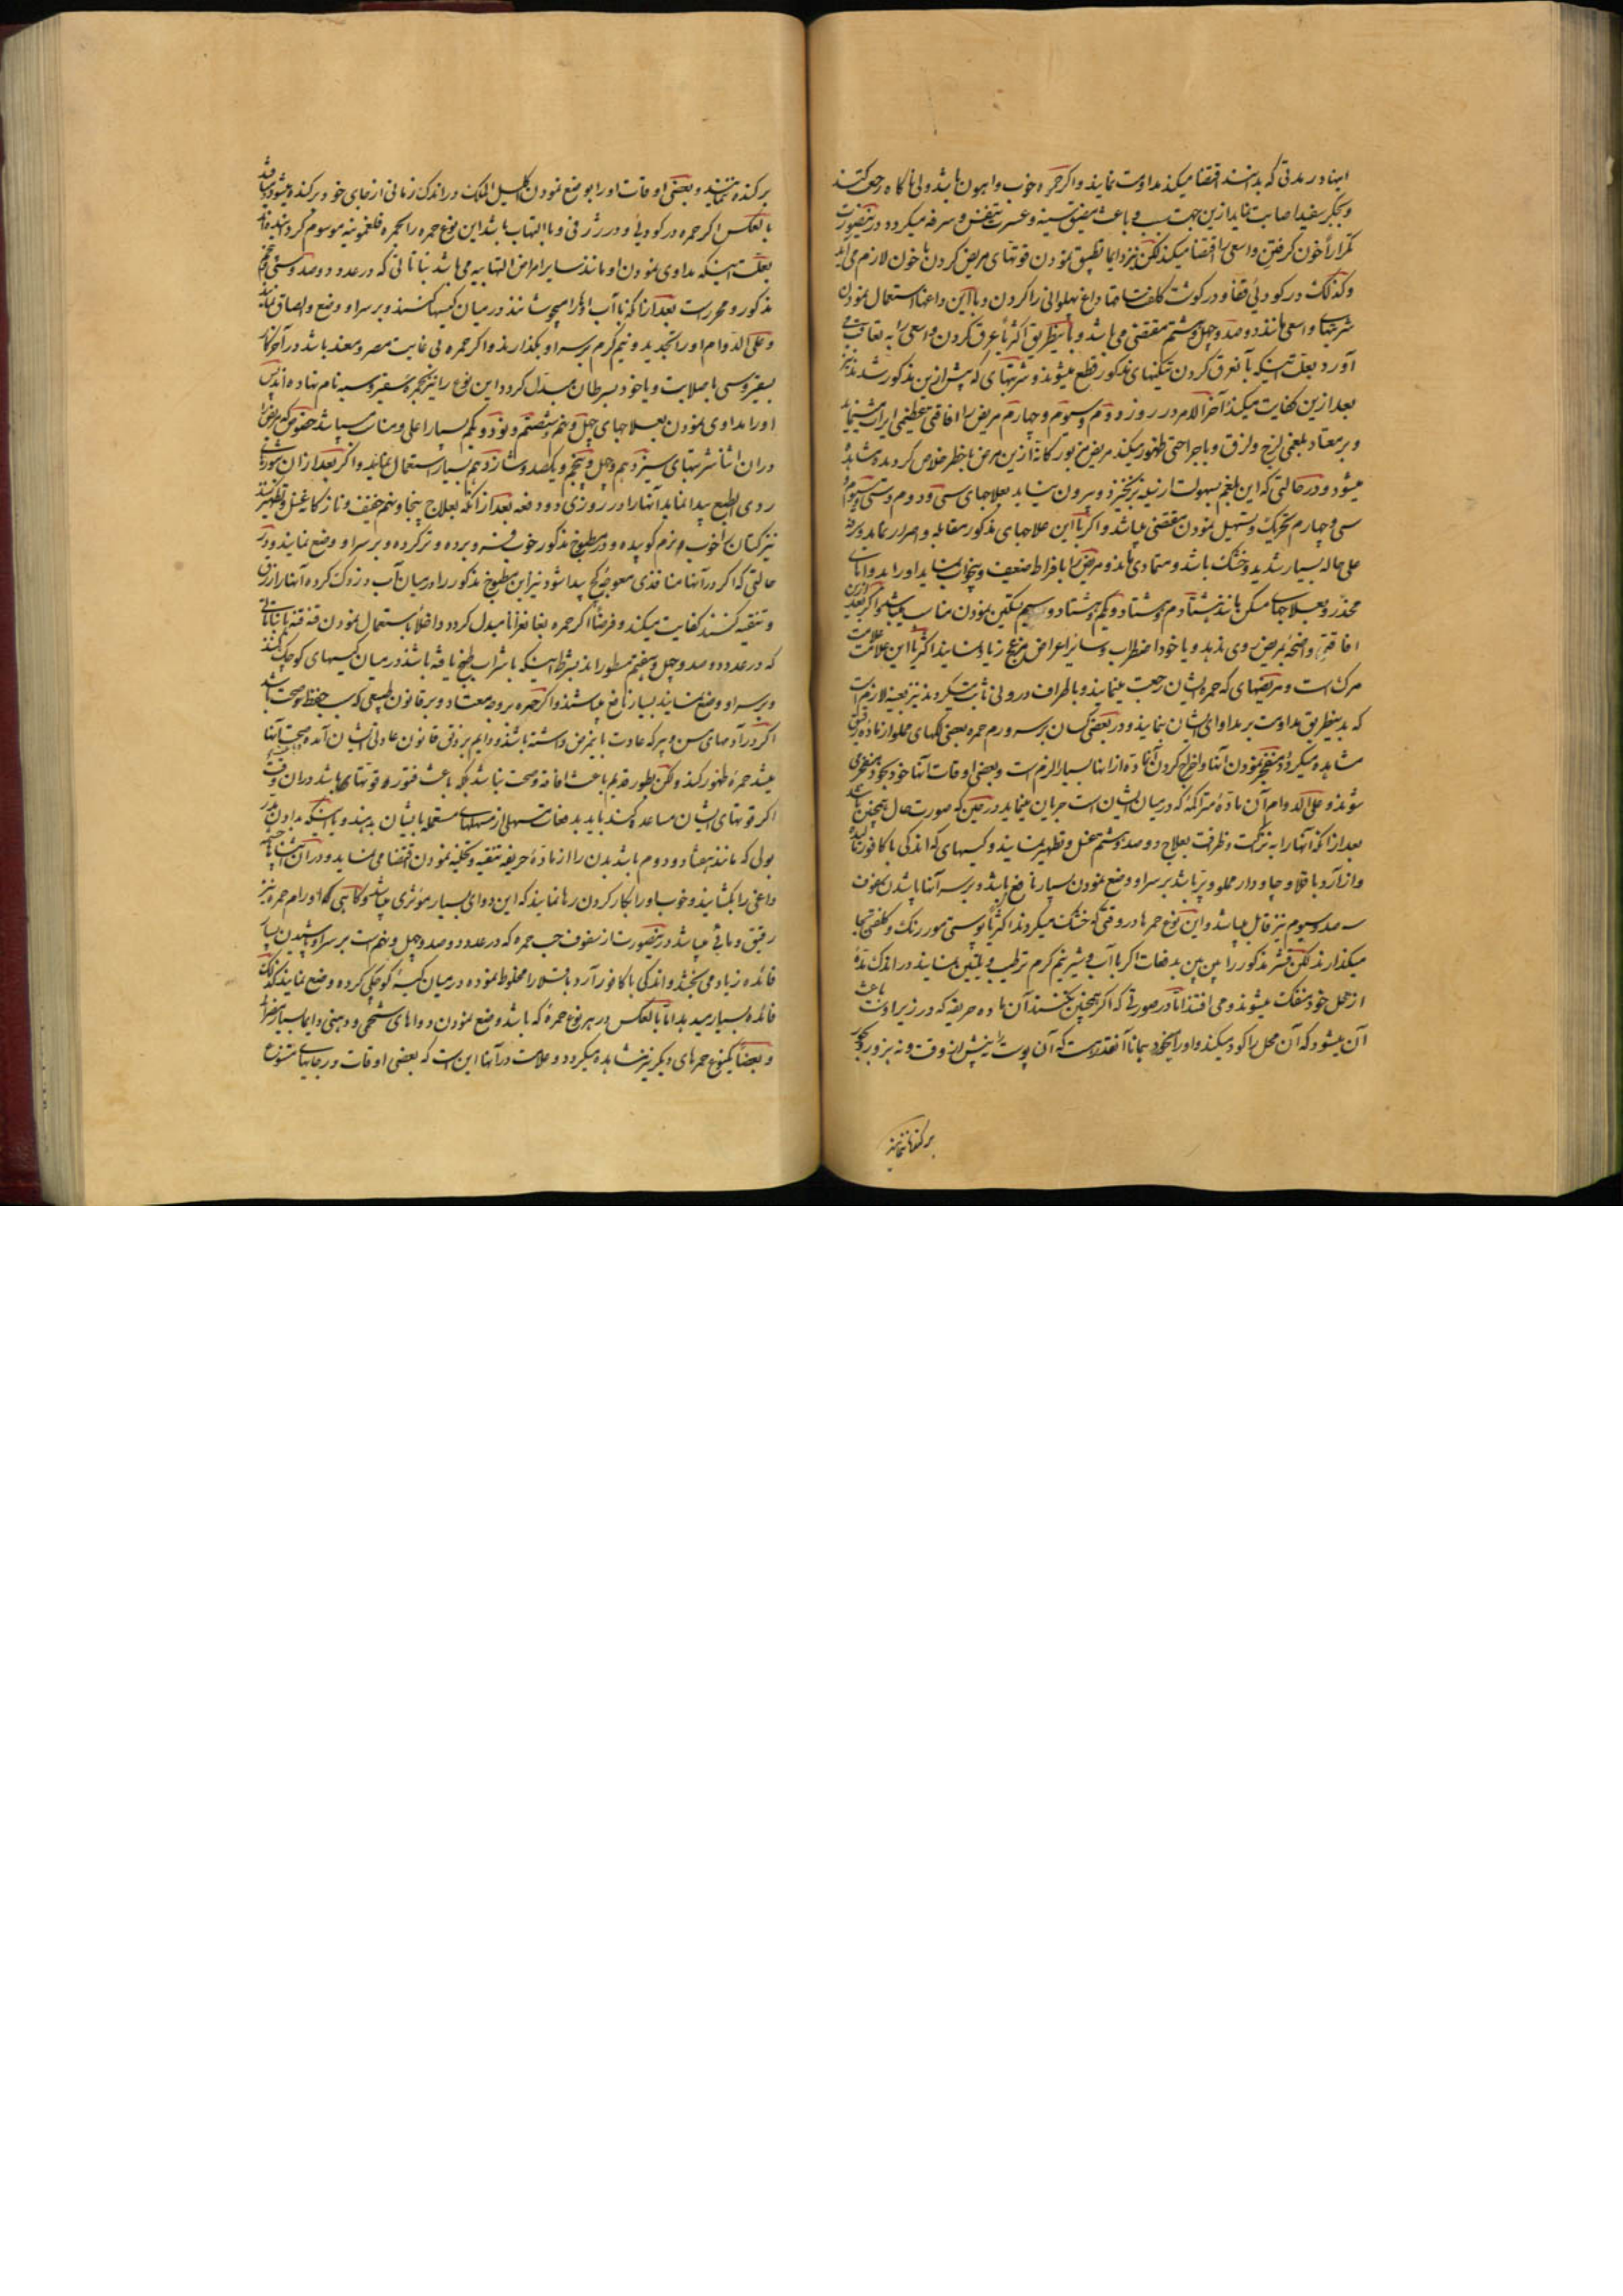 اینها در مدتی که بدانستند اقتضا میکند مداومت نمایند و اگر حمره خوب و اهون باشد ولی ناگاه رجعت کند
و بجگر سفید اصابت نماید ازین جهت سبب و باعث ضیق سینه و عسرت تنفس و سرفه میگردد درینصورت
تکرارا خون گرفتن واسعی را اقتضا میکند لکن نیز دایما تطبیق نمودن قوتهای مریض کردن با خون لازم می آید
و کذلک در گودی قفا و در گوشت کلفت داغ پهلوانی را کردن و با این داغها استعمال نمودن
شربتهای واسعی مانند دوصد و چهل و ششم مقتضی می باشد و باینطریق اکثرا عرق کردن واسعی را به تعاقب می
آورد بعلت اینکه با عرق کردن تنگیهای مذکور قطع میشوند و شربتهای که پیش ازین مذکور شدند نیز
بعد ازین کفایت میکند آخر الامر در روز دوم و سوم و چهارم مریض را افاقه عظیمی
و بر معتاد بلغمی لزج و لزق و یا جراحتی ظهور میکند مریض از این مرض با خطر خلاص گردیده مشاهده
میشود و در حالتی که این بلغم بسهولت از سینه برنخیزد و بیرون نیاید بعلاجهای سی و دوم و سی و سوم
سی و چهارم تحریک و تسهیل نمودن مقتضی میباشد و اگر با این علاجهای مذکور مقابله و اصرار نماید و سرفه
علی حاله بسیار شدید و خشک باشد و متمادی بماند و مریض را با فراط ضعیف و بیخواب نماید او را بدواهای
مخدر و بعلاجهای مسکن مانند هشتادم و هشتاد و یکم و هشتاد و سیم تسکین نمودن مناسب میباشد و اگر بعد ازین
افاقتی واضحه بمریض روی ندهد و یا خود اضطراب و سایر اعراض مزعج زیاد نمایند اکثرا این علامت
مرگ است و مریضهای که حمره ایشان رجعت مینمایند و باطراف درونی ثابت نگردند نیز بعینه لازم است
که بدینطریق مداومت بر مداوای ایشان نمایند و در بعضی کسان بر سر ورم حمره بعضی لکهای مملو از ماده رقیق
مشاهده میگردد منفجر نمودن آنها و اخراج کردن آن ماده از آنها بسیار الزم است و بعضی اوقات آنها خود بخود منفجر
شوند و علی الدوام آن ماده متراکمه که در میان ایشان است جریان مینماید در حین که صورت حال همچنین باشد
بعد از آنکه آنها را به نزاکت و ظرافت بعلاج دو صد و هشتم غسل و تطهیر نمایند و کیسهای که اندکی با کافور مالیده
و از آرد باقلا و چاودار مملو و پر باشد بر سر او وضع نمودن بسیار نافع باشد و بر سر آنها پاشیدن سفوف
سه صد و سیوم نیز قابل میباشد و این نوع حمرها در وقتی که خشک میگردند اکثرا پوستی مور رنگ و کلفتی بجا
میگذارند لکن قشر مذکور را پس پس بدفعات اگر با آب و شیر نیم گرم ترطیب و تلیین نمایند در اندک مدتی
از محل خود منفک میشوند و می افتند اما در صورتی که اگر همچنین نکنند آن ماده حریفه که در زیر اوست باعث
آن میشود که آن محل را گود میکند و او را میخورد بجا آنقدر هست که آن پوست را پیش از وقت و نه بزور دیگر
برکنده ننمایند
برکنده ننمایند و بعضی اوقات او را بوضع نمودن اکلیل الملک در اندک زمانی از جای خود برکنده میشود و میافتد
بالعکس اگر حمره در گودی و در ژرفی و با التهاب باشد این نوع حمره را بحمره فلغمونیه موسوم کرده نهاده اند
بعلت اینکه مداوی نمودن او مانند سایر امراض التهابیه می باشد نباتاتی که در عدد دو صد و سی و پنجم
مذکور و محرر است بعد از آنکه با آب او را بجوشانند در میان کیسها کنند و بر سر او وضع و الصاق نمایند
و علی الدوام او را تجدید و نیم گرم بر سر او بگذارند و اگر حمره بی غایت مصر و معند باشد در آخر کار
بسقیروسی با صلابت و یا خود بسرطان مبدل گردد این نوع را نیز بحمره سقیروسیه نام نهاده اند پس
او را مداوی نمودن بعلاجهای چهل و نهم و شصتم و نود و یکم بسیار اعلی و مناسب میباشد خصوصا که مریض را
در آن اثنا شربتهای سیزدهم و چهل و پنجم و یکصد و شانزدهم بسیار استعمال نمایند و اگر بعد از آن سوراخهای
ردی الطبع پیدا نماید آنها را در روزی دو دفعه بعد از آنکه بعلاج پنجاه و نهم خفیف و نازکانه غسل و تطهیر کنند
نیز کتان را خوب و نرم کوبیده و در مطبوخ مذکور خوب فرو برده و تر کرده و بر سر او وضع نمایند و در
حالتی که اگر در آنها منافذی معوجه کج پیدا شود نیز این مطبوخ مذکور را در میان آب دزدک کرده آنها را زرق
و تنقیه کنند کفایت میکند و فرضا اگر حمره بغانغرانا مبدل گردد داخلا باستعمال نمودن قنه قنه با نباتاتی
که در عدد دو صد و چهل و هفتم مسطورند بشرط اینکه با شراب طبخ یافته باشد در میان کیسهای کوچک کنند
و بر سر او وضع نمایند بسیار نافع میباشند و اگر حمره بر وجه معتاد و بر قانون طبیعی که سبب حفظ صحت باشد
اگر در آدمهای مسن و پیر که عادت باین مرض داشته باشند و دایم بر وفق قانون عادلی ایشان آمده صحت آنها
میشد حمره ظهور کند و لکن بطور قدیم باعث افاقه و صحت نباشد بلکه باعث فتور قوتهای باشد در آن وقت
اگر قوتهای ایشان مساعد کنند باید بدفعات مسهلی از مسهلهای مستعمله بایشان بدهند و با اینکه بدادن مدر
بولی که مانند هفتاد و دوم باشد بدن را از ماده حریفه تنقیه و تخلیه نمودن اقتضا می نماید و در آن اثناها
داغی را بگشایند و خوب او را بکار کردن رها نمایند که این دوای بسیار موثری میباشد و گاهی که اورام حمره نیز
رقیق و مائی میباشد درینصورت از سفوف حب حمره که در عدد دو صد و چهل و نهم است بر سر او پاشیدن بسیار
فائده زیاد می بخشد و اندکی با کافور آرد باقلا را مخلوط نموده در میان کیسه کوچکی کرده و وضع نمایند کذلک
فائده بسیار میدهد اما بالعکس در هر نوع حمره که باشد وضع نمودن دواهای شحمی و دهنی دایما بسیار مضر است
و بعضا یکنوع حمرهای دیگر نیز مشاهده میگردد و علامت در آنها این است که بعضی اوقات در جایهای متنوع